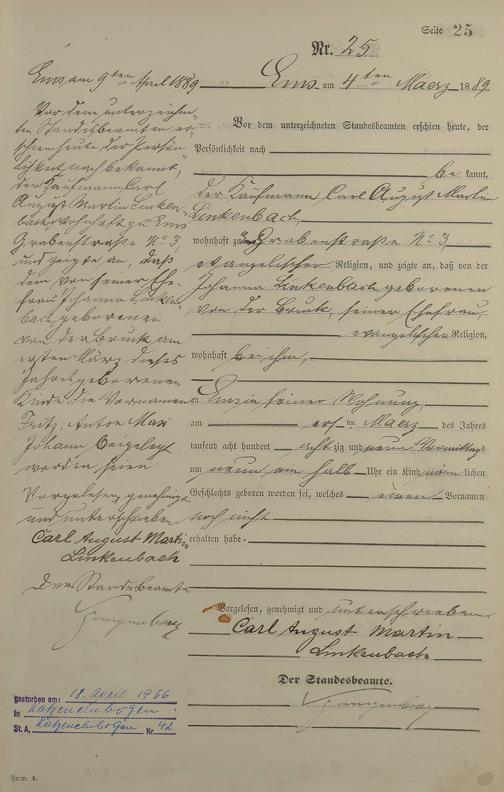 Seite 25
Nr. 25
Ems am 4ten Maerz 1889
Vor dem unterzeichneten Standesbeamten erschien heute, der
Persönlichkeit nach
be kannt,
der Kaufmann Carl August Martin
Linkenbach,
wohnhaft zu Ems Grabenstraße No 3,
evangelischer Religion, und zeigte an, daß von der
Johanna Linkenbach geborenen
von der Bruck, seiner Ehefrau,
evangelischen Religion,
wohnhaft bei ihm,
zu Ems in seiner Wohnung,
am ersten Maerz des Jahres
tausend acht hundert achtzig und neun Vormittags
um neun ein halb Uhr ein Kind männlichen
Geschlechts geboren worden sei, welches einen Vornamen
noch nicht
erhalten habe.
Vorgelesen, genehmigt und unterschrieben
Carl August Martin
Linkenbach
Der Standesbeamte.
Ems am 9ten April 1889
Vor dem unterzeichne-
ten Standesbeamten er-
schien heute der Persön-
lichkeit nach bekannt,
der Kaufmann Carl
August Martin Linken-
bach, wohnhaft zu Ems
Grabenstraße No 3,
und zeigte an, daß
dem von seiner Ehe-
frau Johanna Linken-
bach geborenen
von der Bruck am
ersten März dieses
Jahres geborenen
Kinde die Vornamen
Fritz, Anton Max
Johann beigelegt
worden seien
Vorgelesen, genehmigt
und unterschrieben
Carl August Martin
Linkenbach
Der Standesbeamte
gestorben am: 18. April 1966
in Katzenelnbogen
St. A. Katzenelnbogen Nr 42
Form. A.